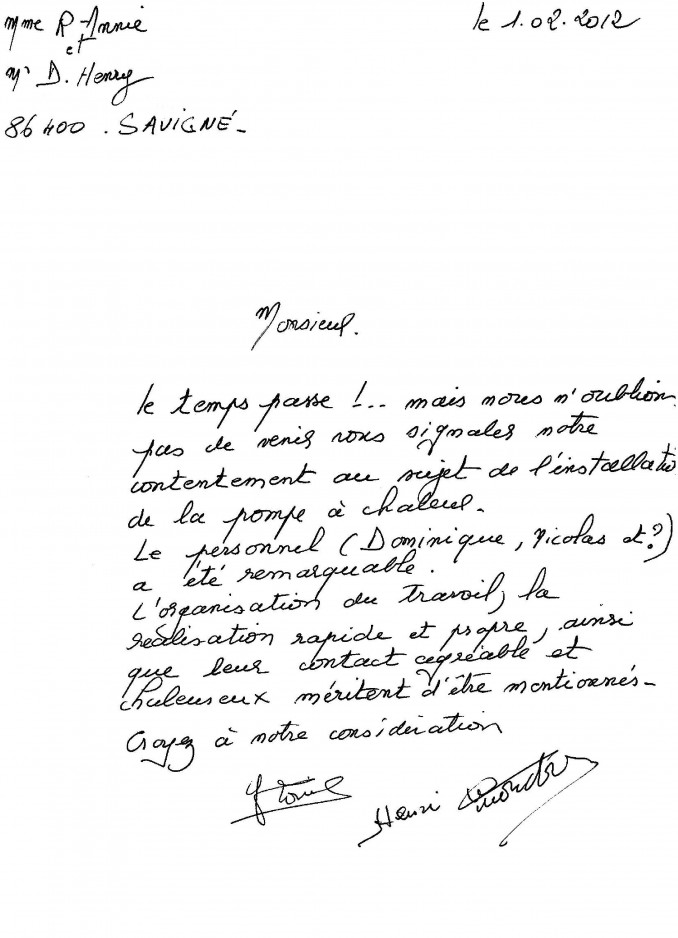 Mme R Annie
et
Mr D. Henry
86400 . SAVIGNÉ -
le 1.02.2012
Monsieur.
le temps passe !.. mais nous n'oublion
pas de venir vous signaler notre
contentement au sujet de l'installatio
de la pompe à chaleur.
Le personnel (Dominique, Nicolas et ?)
a été remarquable.
L'organisation du travail, la
réalisation rapide et propre, ainsi
que leur contact agréable et
chaleureux méritent d'être mentionnés -
Croyez à notre considération
Henri